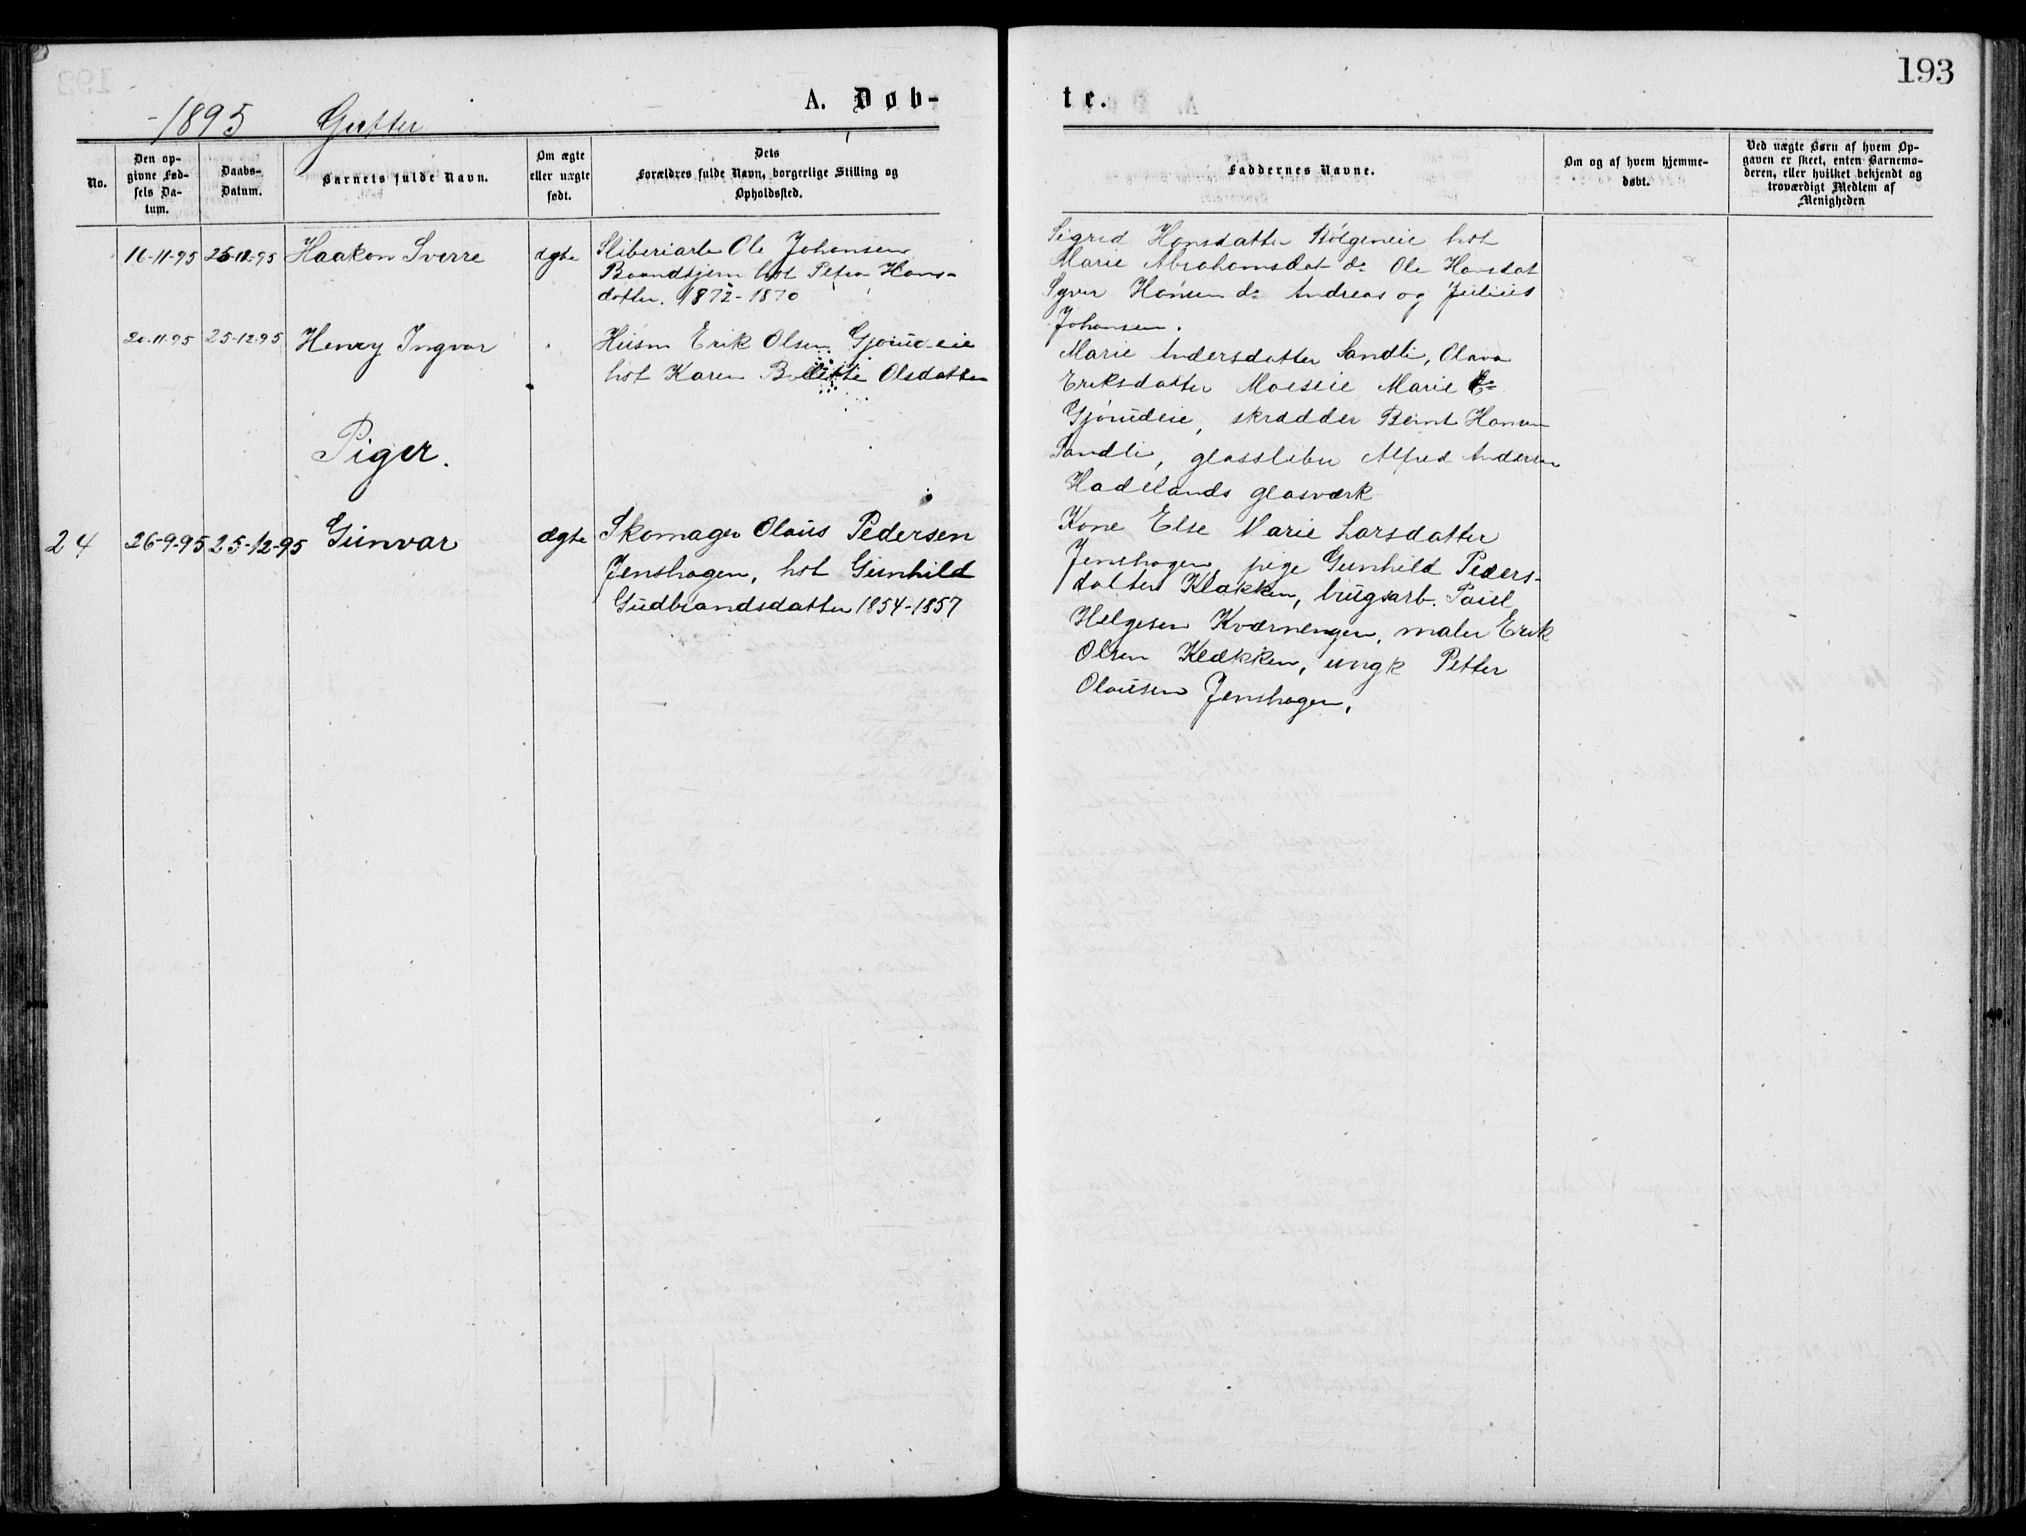 193
A. Døb-
te.
1895 Gutter
No.
Den op-
givne Fød-
sels Da-
tum.
Daabs-
Datum.
Barnets fulde Navn.
Om ægte
eller uægte
født.
Dets
Forældres fulde Navn, borgerlige Stilling og
Opholdssted.
Faddernes Navne.
Om og af hvem hjemme-
døbt.
Ved uægte Børn af hvem Op-
gaven er skeet, enten Barnemo-
deren, eller hvilket bekjendt og
troværdigt Medlem af
Menigheden
16-11-95 25-12-95 Haakon Sverre ægte Sliberiarb Ole Johansen
Brandtjern hst Petra Hans-
datter. 1872-1870
Sigrid Hansdatter Bølgeneie hst
Marie Abrahamsdat do Ole Hansdat
Syver Hansen do Andreas og Julius
Johansen.
20-11-95 25-12-95 Henry Ingvar
Husm Erik Olsen Gjørudeie
hst Karen Olsdatter
Marie Andersdatter Sandli, Olava
Eriksdatter Moeseie Marie do
Gjørudeie, skrædder Bernt Hansen
Sandli, glassliber Alfred Andersen
Hadelands glasværk
Piger.
24 26-9-95 25-12-95 Gunvar ægte Skomager Olaus Pedersen
Jenshagen, hst Gunhild
Gudbrandsdatter 1854-1857
Kone Else Marie Larsdatter
Jenshagen, pige Gunhild Peders-
datter Klækken, brugsarb. Paul
Helgesen Kværnengen, maler Erik
Olsen Klækken, ungk Petter
Olausen Jenshagen,